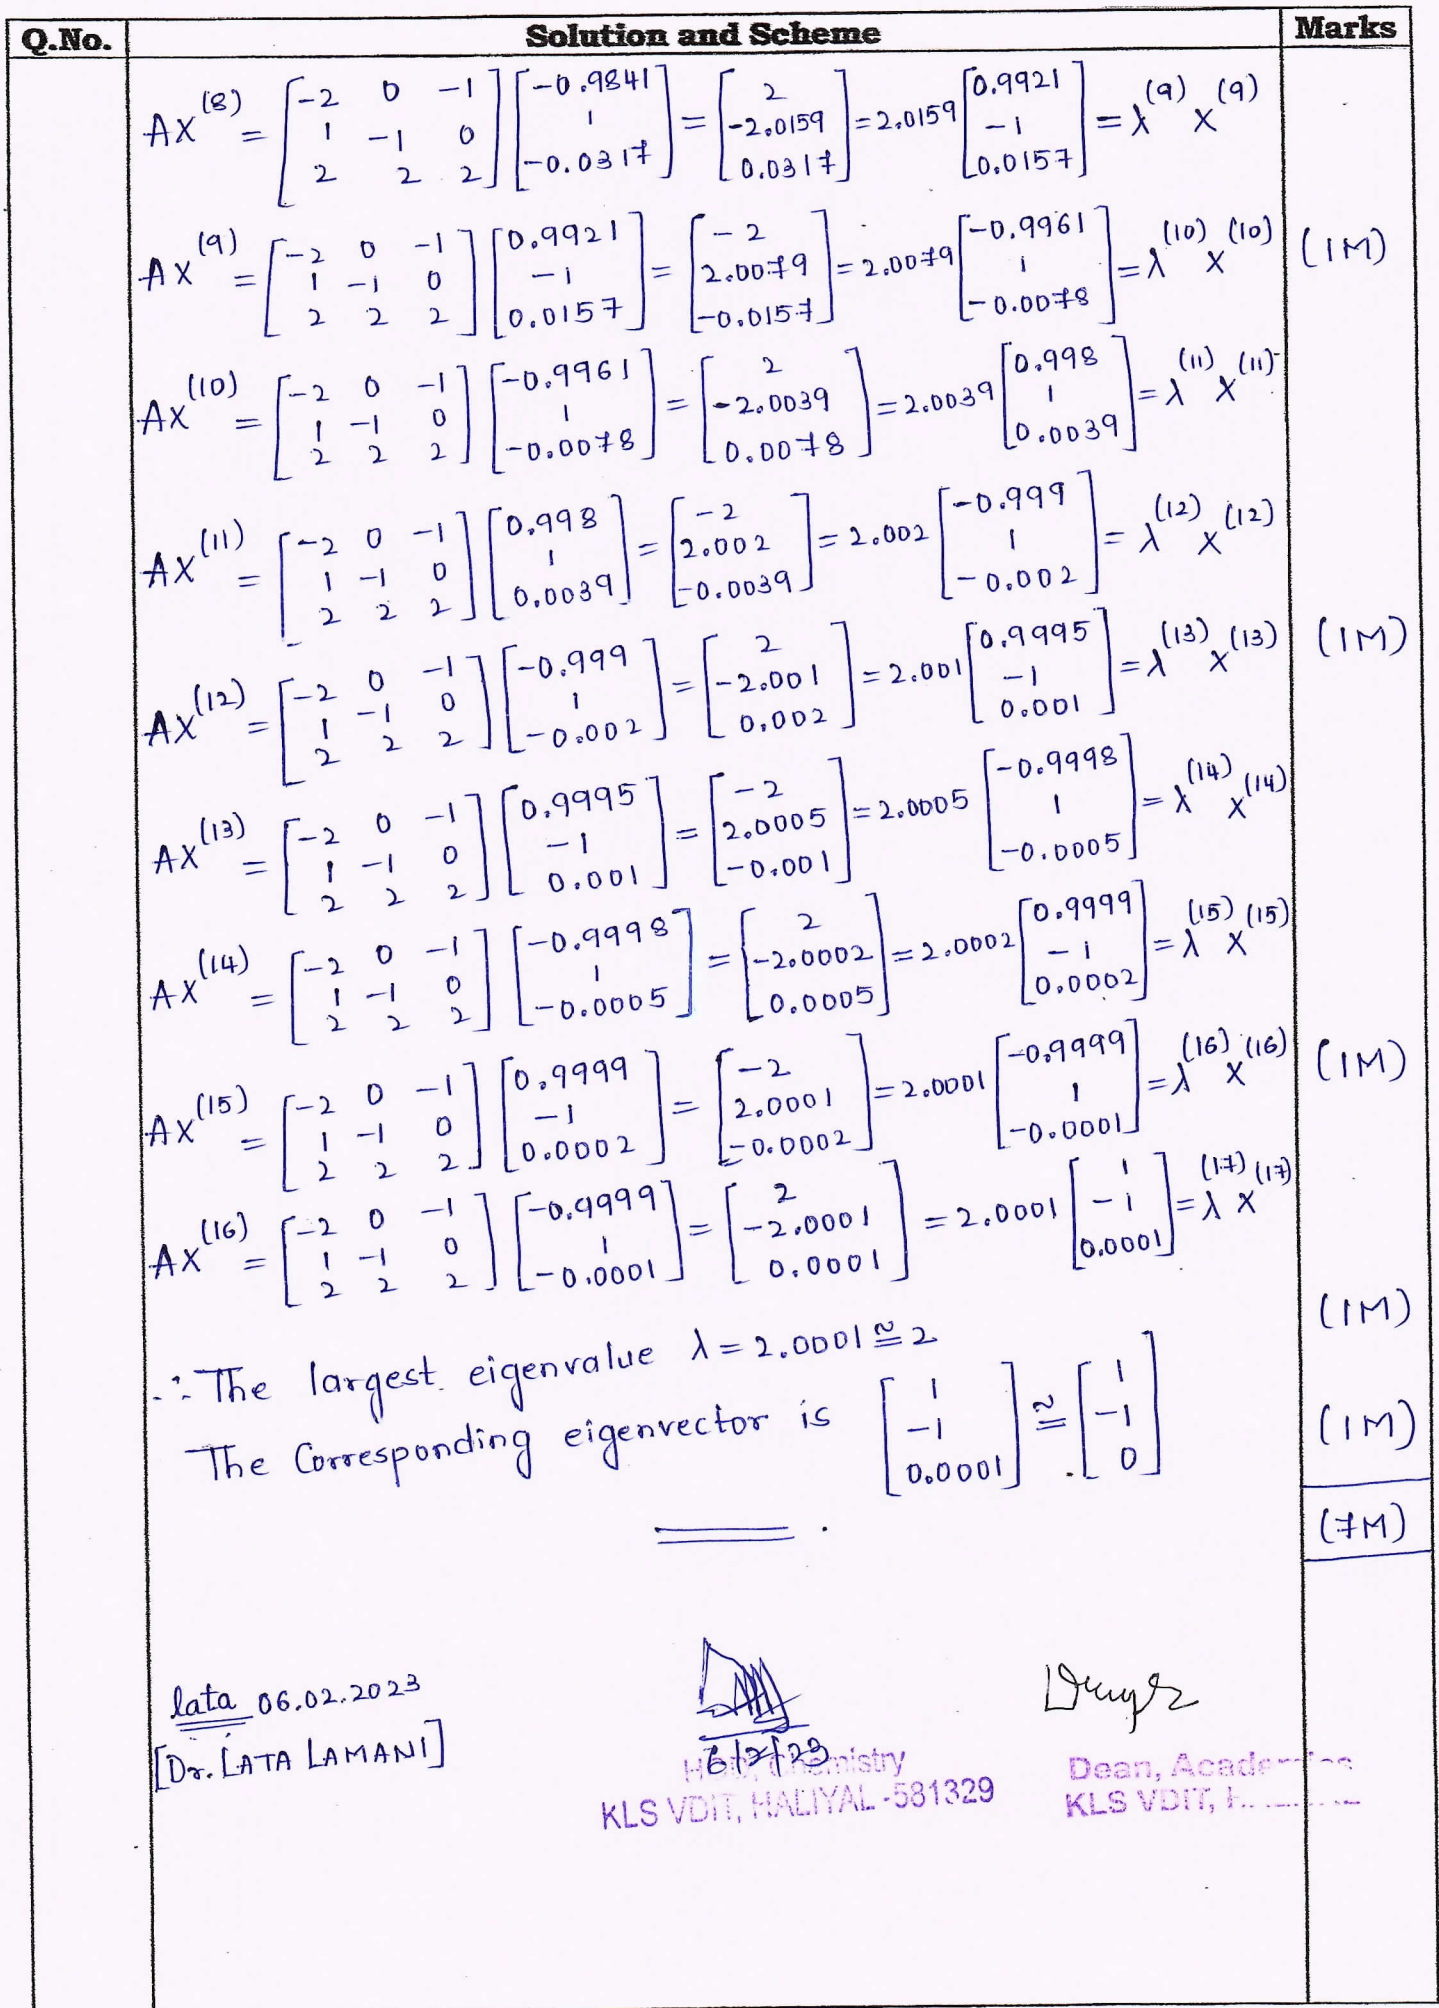 Q.No. Solution and Scheme Marks
AX^(8) = [-2 0 -1; 1 -1 0; 2 2 2] [-0.9841; 1; -0.0317] = [2; -2.0159; 0.0317] = 2.0159 [0.9921; -1; 0.0157] = λ^(9) X^(9)
AX^(9) = [-2 0 -1; 1 -1 0; 2 2 2] [0.9921; -1; 0.0157] = [-2; 2.0079; -0.0157] = 2.0079 [-0.9961; 1; -0.0078] = λ^(10) X^(10) (1M)
AX^(10) = [-2 0 -1; 1 -1 0; 2 2 2] [-0.9961; 1; -0.0078] = [2; -2.0039; 0.0078] = 2.0039 [0.998; 1; 0.0039] = λ^(11) X^(11)
AX^(11) = [-2 0 -1; 1 -1 0; 2 2 2] [0.998; 1; 0.0039] = [-2; 2.002; -0.0039] = 2.002 [-0.999; 1; -0.002] = λ^(12) X^(12)
AX^(12) = [-2 0 -1; 1 -1 0; 2 2 2] [-0.999; 1; -0.002] = [2; -2.001; 0.002] = 2.001 [0.9995; -1; 0.001] = λ^(13) X^(13) (1M)
AX^(13) = [-2 0 -1; 1 -1 0; 2 2 2] [0.9995; -1; 0.001] = [-2; 2.0005; -0.001] = 2.0005 [-0.9998; 1; -0.0005] = λ^(14) X^(14)
AX^(14) = [-2 0 -1; 1 -1 0; 2 2 2] [-0.9998; 1; -0.0005] = [2; -2.0002; 0.0005] = 2.0002 [0.9999; -1; 0.0002] = λ^(15) X^(15)
AX^(15) = [-2 0 -1; 1 -1 0; 2 2 2] [0.9999; -1; 0.0002] = [-2; 2.0001; -0.0002] = 2.0001 [-0.9999; 1; -0.0001] = λ^(16) X^(16) (1M)
AX^(16) = [-2 0 -1; 1 -1 0; 2 2 2] [-0.9999; 1; -0.0001] = [2; -2.0001; 0.0001] = 2.0001 [1; -1; 0.0001] = λ^(17) X^(17)
(1M)
∴ The largest eigenvalue λ = 2.0001 ≅ 2
The Corresponding eigenvector is [1; -1; 0.0001] ≅ [1; -1; 0] (1M)
(7M)
lata 06.02.2023
[Dr. LATA LAMANI]
6/2/23
Dean,
KLS VDIT, HALIYAL-581329
KLS VDIT,